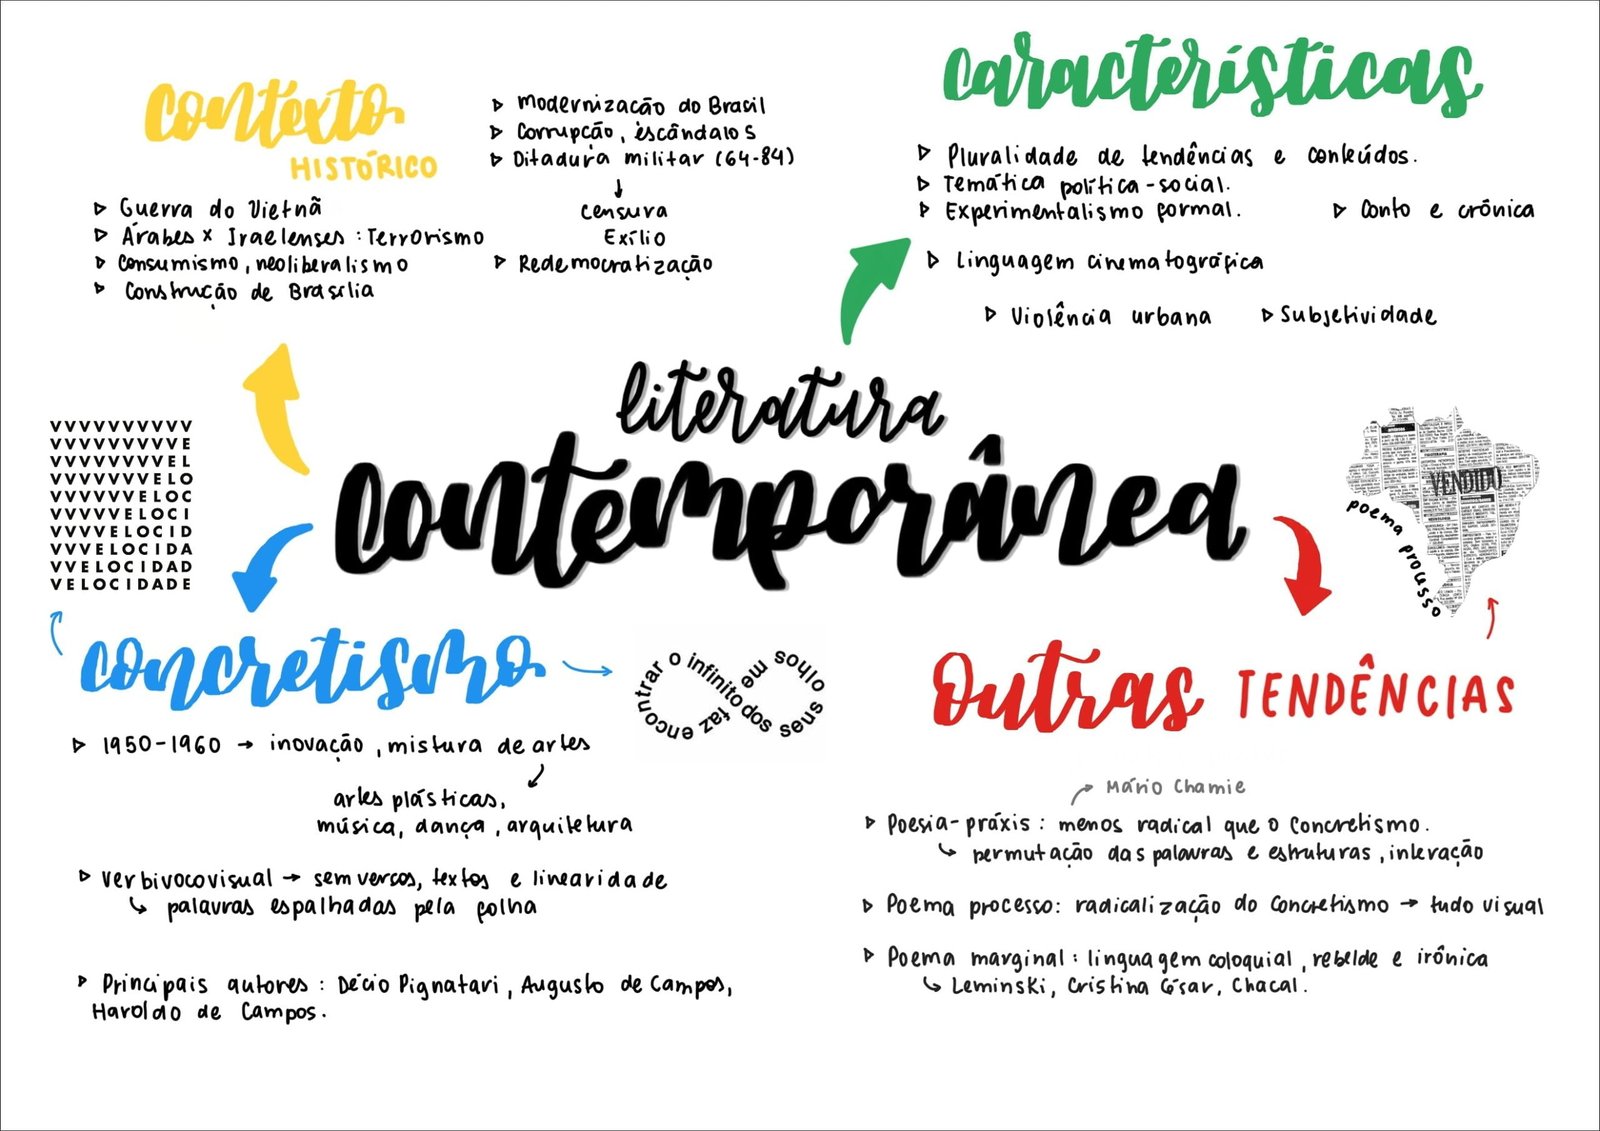 Contexto
HISTÓRICO
▷ Guerra do Vietnã
▷ Árabes x Iraelenses : Terrorismo
▷ Consumismo, neoliberalismo
▷ Construção de Brasília
▷ Modernização do Brasil
▷ Corrupção, escândalos
▷ Ditadura militar (64-84)
↓
Censura
Exílio
▷ Redemocratização
Características
▷ Pluralidade de tendências e conteúdos.
▷ Temática política-social.
▷ Experimentalismo formal.
▷ Conto e crônica
▷ Linguagem cinematográfica
▷ Violência urbana
▷ Subjetividade
literatura
Contemporânea
VVVVVVVVVV
VVVVVVVVVE
VVVVVVVVEL
VVVVVVVELO
VVVVVVELOC
VVVVVELOCI
VVVVELOCID
VVVELOCIDA
VVELOCIDAD
VELOCIDADE
Concretismo
encontrar o infinito dos seus olhos me faz
▷ 1950-1960 → inovação, mistura de artes
artes plásticas,
música, dança, arquitetura
▷ Verbivocovisual → sem versos, textos e linearidade
↳ palavras espalhadas pela folha
▷ Principais autores : Décio Pignatari, Augusto de Campos,
Haroldo de Campos.
VENDIDO
poema prousso
Outras TENDÊNCIAS
Mário Chamie
▷ Poesia-práxis : menos radical que o Concretismo.
↳ permutação das palavras e estruturas, interação
▷ Poema processo: radicalização do Concretismo → tudo visual
▷ Poema marginal : linguagem coloquial, rebelde e irônica
↳ Leminski, Cristina César, Chacal.